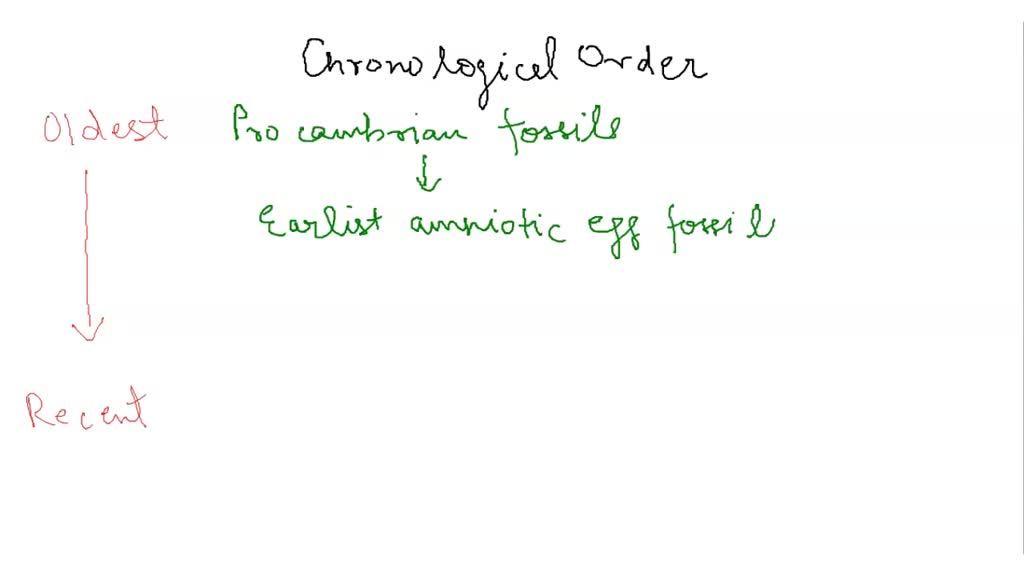 Chronological Order
Oldest Procambrian fossils
Earlist amniotic egg fossil
Recent